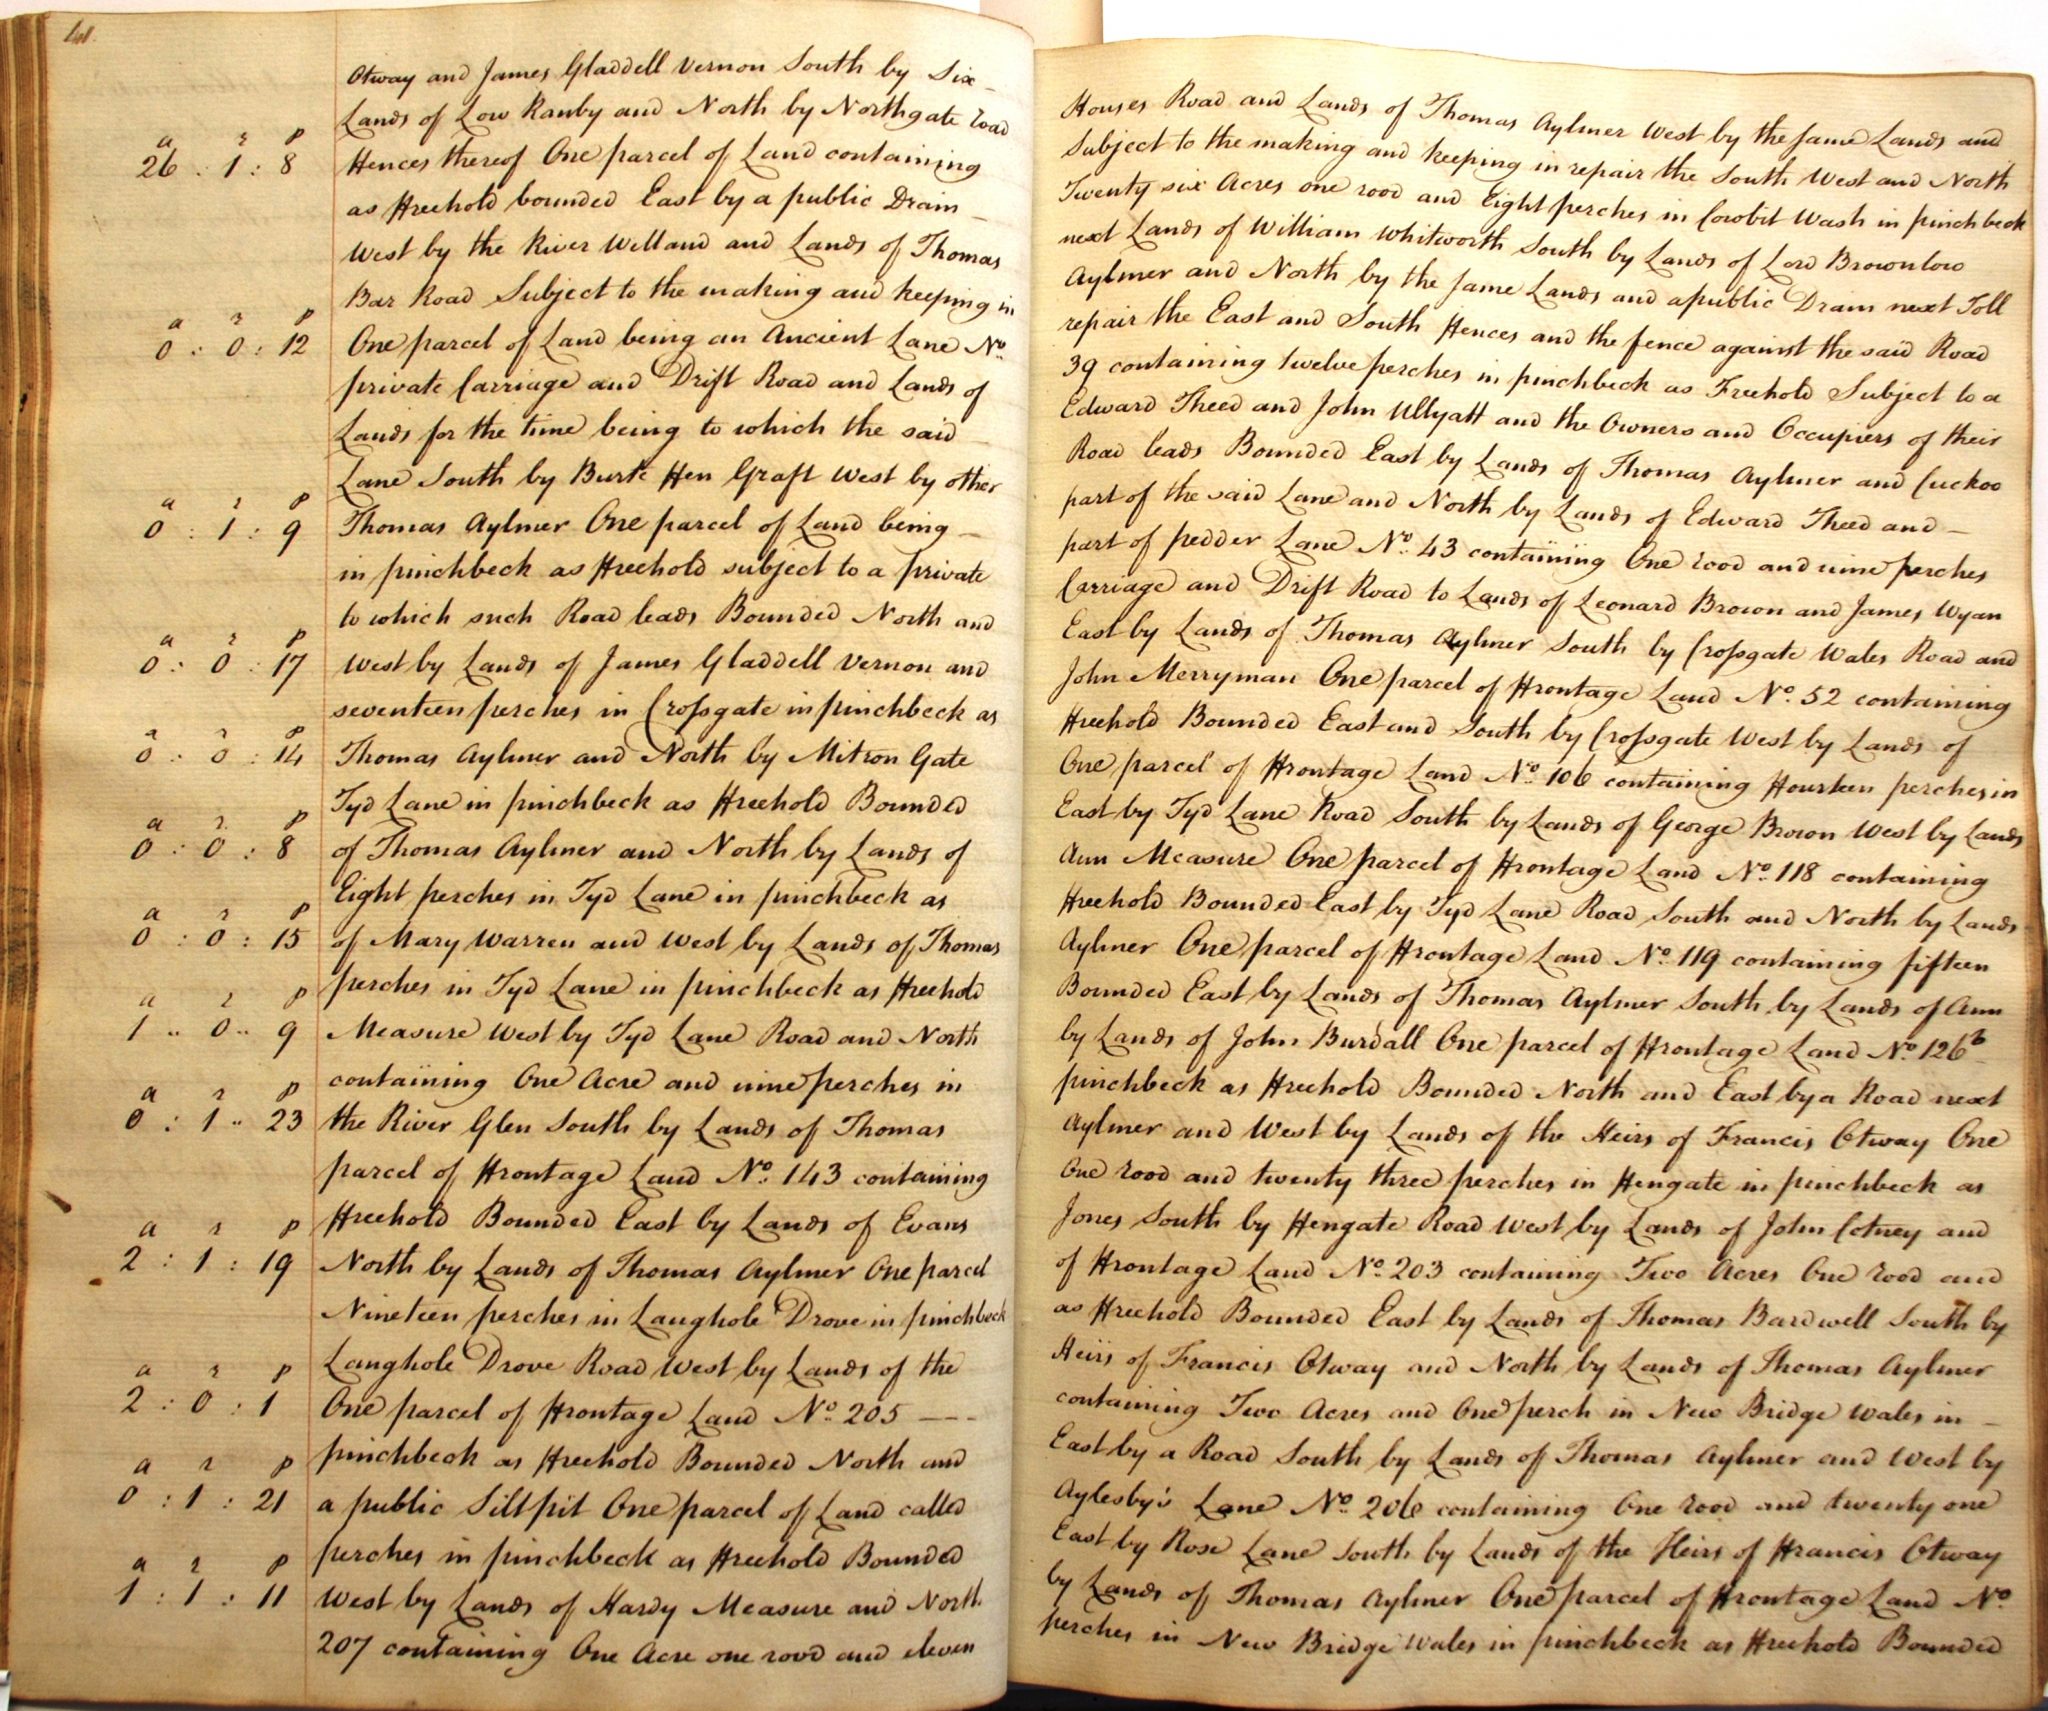 Otway and James Gladdell Vernon South by Six Houses Road and Lands of Thomas Aylmer West by the same Lands and
Lands of Low Ranby and North by Northgate road Subject to the making and keeping in repair the South West and North
a r p
26 : 1 : 8 Fences thereof One parcel of Land containing Twenty six Acres one rood and Eight perches in Cowbit Wash in pinchbeck
as Freehold bounded East by a public Drain next Lands of William Whitworth South by Lands of Lord Brownlow
West by the River Welland and Lands of Thomas Aylmer and North by the same Lands and a public Drain next Toll
Bar Road Subject to the making and keeping in repair the East and South Fences and the fence against the said Road
a r p
0 : 0 : 12 One parcel of Land being an Ancient Lane No. 39 containing twelve perches in pinchbeck as Freehold Subject to a
private Carriage and Drift Road and Lands of Edward Theed and John Ullyatt and the Owners and Occupiers of their
Lands for the time being to which the said Road leads Bounded East by Lands of Thomas Aylmer and Cuckoo
Lane South by Burte Fen Graft West by other part of the said Lane and North by Lands of Edward Theed and
a r p
0 : 1 : 9 Thomas Aylmer One parcel of Land being part of pedder Lane No. 43 containing One rood and nine perches
in pinchbeck as Freehold subject to a private Carriage and Drift Road to Lands of Leonard Brown and James Wyan
to which such Road leads Bounded North and East by Lands of Thomas Aylmer South by Crossgate Wales Road and
a r p
0 : 0 : 17 West by Lands of James Gladdell Vernon and John Merryman One parcel of Frontage Land No. 52 containing
seventeen perches in Crossgate in pinchbeck as Freehold Bounded East and South by Crossgate West by Lands of
a r p
0 : 0 : 14 Thomas Aylmer and North by Mitron Gate One parcel of Frontage Land No. 106 containing Fourteen perches in
Tyd Lane in pinchbeck as Freehold Bounded East by Tyd Lane Road South by Lands of George Brown West by Lands
a r p
0 : 0 : 8 of Thomas Aylmer and North by Lands of Ann Measure One parcel of Frontage Land No. 118 containing
Eight perches in Tyd Lane in pinchbeck as Freehold Bounded East by Tyd Lane Road South and North by Lands
a r p
0 : 0 : 15 of Mary Warren and West by Lands of Thomas Aylmer One parcel of Frontage Land No. 119 containing fifteen
perches in Tyd Lane in pinchbeck as Freehold Bounded East by Lands of Thomas Aylmer South by Lands of Ann
a r p
1 .. 0 .. 9 Measure West by Tyd Lane Road and North by Lands of John Burdall One parcel of Frontage Land No. 126b
containing One Acre and nine perches in pinchbeck as Freehold Bounded North and East by a Road next
a r p
0 : 1 .. 23 the River Glen South by Lands of Thomas Aylmer and West by Lands of the Heirs of Francis Otway One
parcel of Frontage Land No. 143 containing One rood and twenty three perches in Fengate in pinchbeck as
Freehold Bounded East by Lands of Evans Jones South by Fengate Road West by Lands of John Cotney and
a r p
2 : 1 : 19 North by Lands of Thomas Aylmer One parcel of Frontage Land No. 203 containing Two Acres One rood and
Nineteen perches in Langhole Drove in pinchbeck as Freehold Bounded East by Lands of Thomas Bardwell South by
Langhole Drove Road West by Lands of the Heirs of Francis Otway and North by Lands of Thomas Aylmer
a r p
2 : 0 : 1 One parcel of Frontage Land No. 205 --- containing Two Acres and One perch in New Bridge Wales in
pinchbeck as Freehold Bounded North and East by a Road South by Lands of Thomas Aylmer and West by
a r p
0 : 1 : 21 a public Siltpit One parcel of Land called Aylesby's Lane No. 206 containing One rood and twenty one
perches in pinchbeck as Freehold Bounded East by Rose Lane South by Lands of the Heirs of Francis Otway
a r p
1 : 1 : 11 West by Lands of Hardy Measure and North by Lands of Thomas Aylmer One parcel of Frontage Land No.
207 containing One Acre one rood and eleven perches in New Bridge Wales in pinchbeck as Freehold Bounded